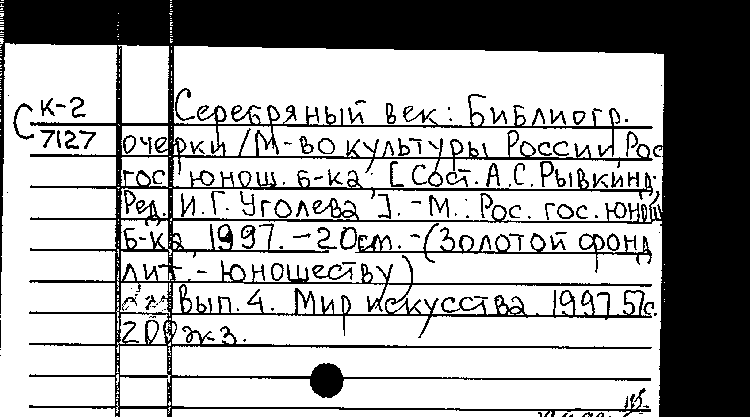 С К-2
7127
Серебряный век: Библиогр.
очерки /М-во культуры России, Рос
гос юнош. б-ка; [Сост. А.С. Рывкинд;
Ред. И.Г. Уголева]. - М.: Рос. гос. юнош
б-ка, 1997. - 20см. - (Золотой фонд
лит. - юношеству)
Вып. 4. Мир искусства. 1997. 57с.
200 экз.